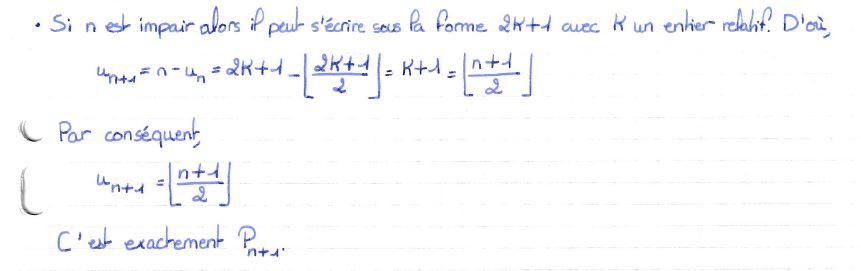 • Si n est impair alors il peut s'écrire sous la forme 2K+1 avec K un entier relatif. D'où,
u_{n+1} = n - u_n = 2K+1 - ⌊(2K+1)/2⌋ = K+1 = ⌊(n+1)/2⌋
Par conséquent,
u_{n+1} = ⌊(n+1)/2⌋
C'est exactement P_{n+1}.